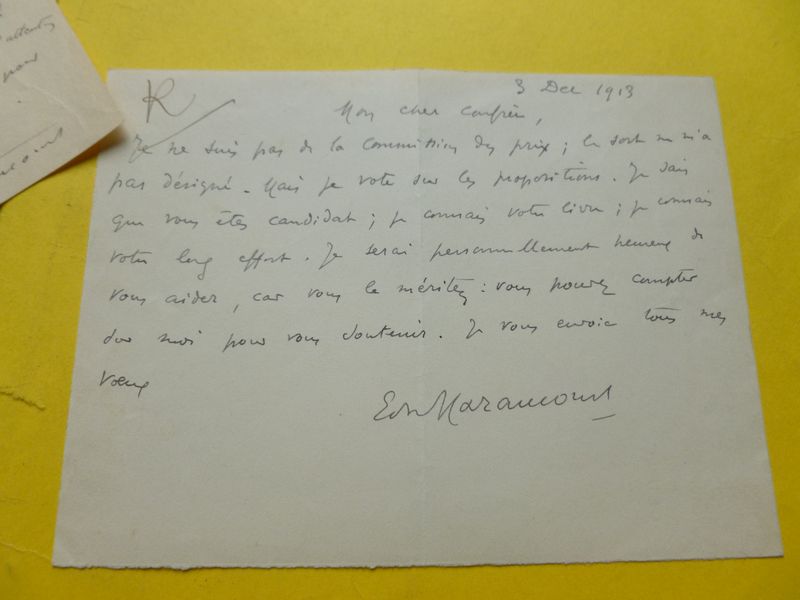 l'attention
pour
R
3 Dec 1913
Mon cher confrère,
Je ne suis pas de la Commission des prix ; le sort ne m'a
pas désigné. Mais je vote sur les propositions. Je sais
que vous êtes candidat ; je connais votre livre ; je connais
votre long effort. Je serai personnellement heureux de
vous aider, car vous le méritez : vous pouvez compter
sur moi pour vous soutenir. Je vous envoie tous mes
vœux
Edm Haraucourt